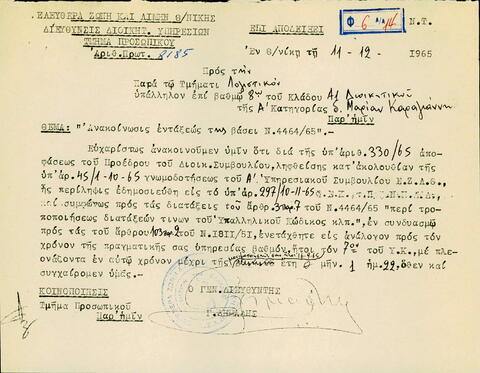 ΕΛΕΥΘΕΡΑ ΖΩΝΗ ΚΑΙ ΛΙΜΗΝ Θ/ΝΙΚΗΣ
ΔΙΕΥΘΥΝΣΙΣ ΔΙΟΙΚΗΤ. ΥΠΗΡΕΣΙΩΝ
ΤΜΗΜΑ ΠΡΟΣΩΠΙΚΟΥ
Ἀριθ.Πρωτ. 8185
ΕΠΙ ΑΠΟΔΕΙΞΕΙ
Φ 6 Ν.Τ.
Ἐν Θ/νίκῃ τῇ 11-12- 1965
Πρός τήν
Παρά τῷ Τμήματι Λογιστικοῦ
ὑπάλληλον ἐπί βαθμῷ 8ῳ τοῦ Κλάδου Α1 Διοικητικοῦ
τῆς Α' Κατηγορίας δ. Μαρίαν Καραγιάννη
Παρ'ἡμῖν
ΘΕΜΑ: "Ἀνακοίνωσις ἐντάξεώς της βάσει Ν.4464/65".-
Εὐχαρίστως ἀνακοινοῦμεν ὑμῖν ὅτι διά τῆς ὑπ'ἀριθ. 330/65 ἀπο-
φάσεως τοῦ Προέδρου τοῦ Διοικ.Συμβουλίου, ληφθείσης κατ'ἀκολουθίαν τῆς
ὑπ'ἀρ. 45/1-10-65 γνωμοδοτήσεως τοῦ Α' Ὑπηρεσιακοῦ Συμβουλίου Ε.Ζ.Λ.Θ.,
ἧς περίληψις ἐδημοσιεύθη εἰς τό ὑπ'ἀριθ. 297/10-11-65
καί συμφώνως πρός τάς διατάξεις τοῦ ἄρθρ. 3 παρ. 7 τοῦ Ν.4464/65 "περί τρο-
ποποιήσεως διατάξεών τινων τοῦ Ὑπαλληλικοῦ Κώδικος κλπ.", ἐν συνδυασμῷ
πρός τάς τοῦ ἄρθρου 103 παρ. 2 τοῦ Ν.1811/51, ἐνετάχθητε εἰς ἀνάλογον πρός τόν
χρόνον τῆς πραγματικῆς σας ὑπηρεσίας βαθμόν, ἤτοι τόν 7ον τοῦ Υ.Κ., μέ πλε-
ονάζοντα ἐν αὐτῷ χρόνον μέχρι τῆς ἔτη 0 μῆν. 1 ἡμ. 22, ὅθεν καί
συγχαίρομεν ὑμᾶς.-
ΚΟΙΝΟΠΟΙΗΣΙΣ
Τμῆμα Προσωπικοῦ
Παρ'ἡμῖν
Ο ΓΕΝ. ΔΙΕΥΘΥΝΤΗΣ